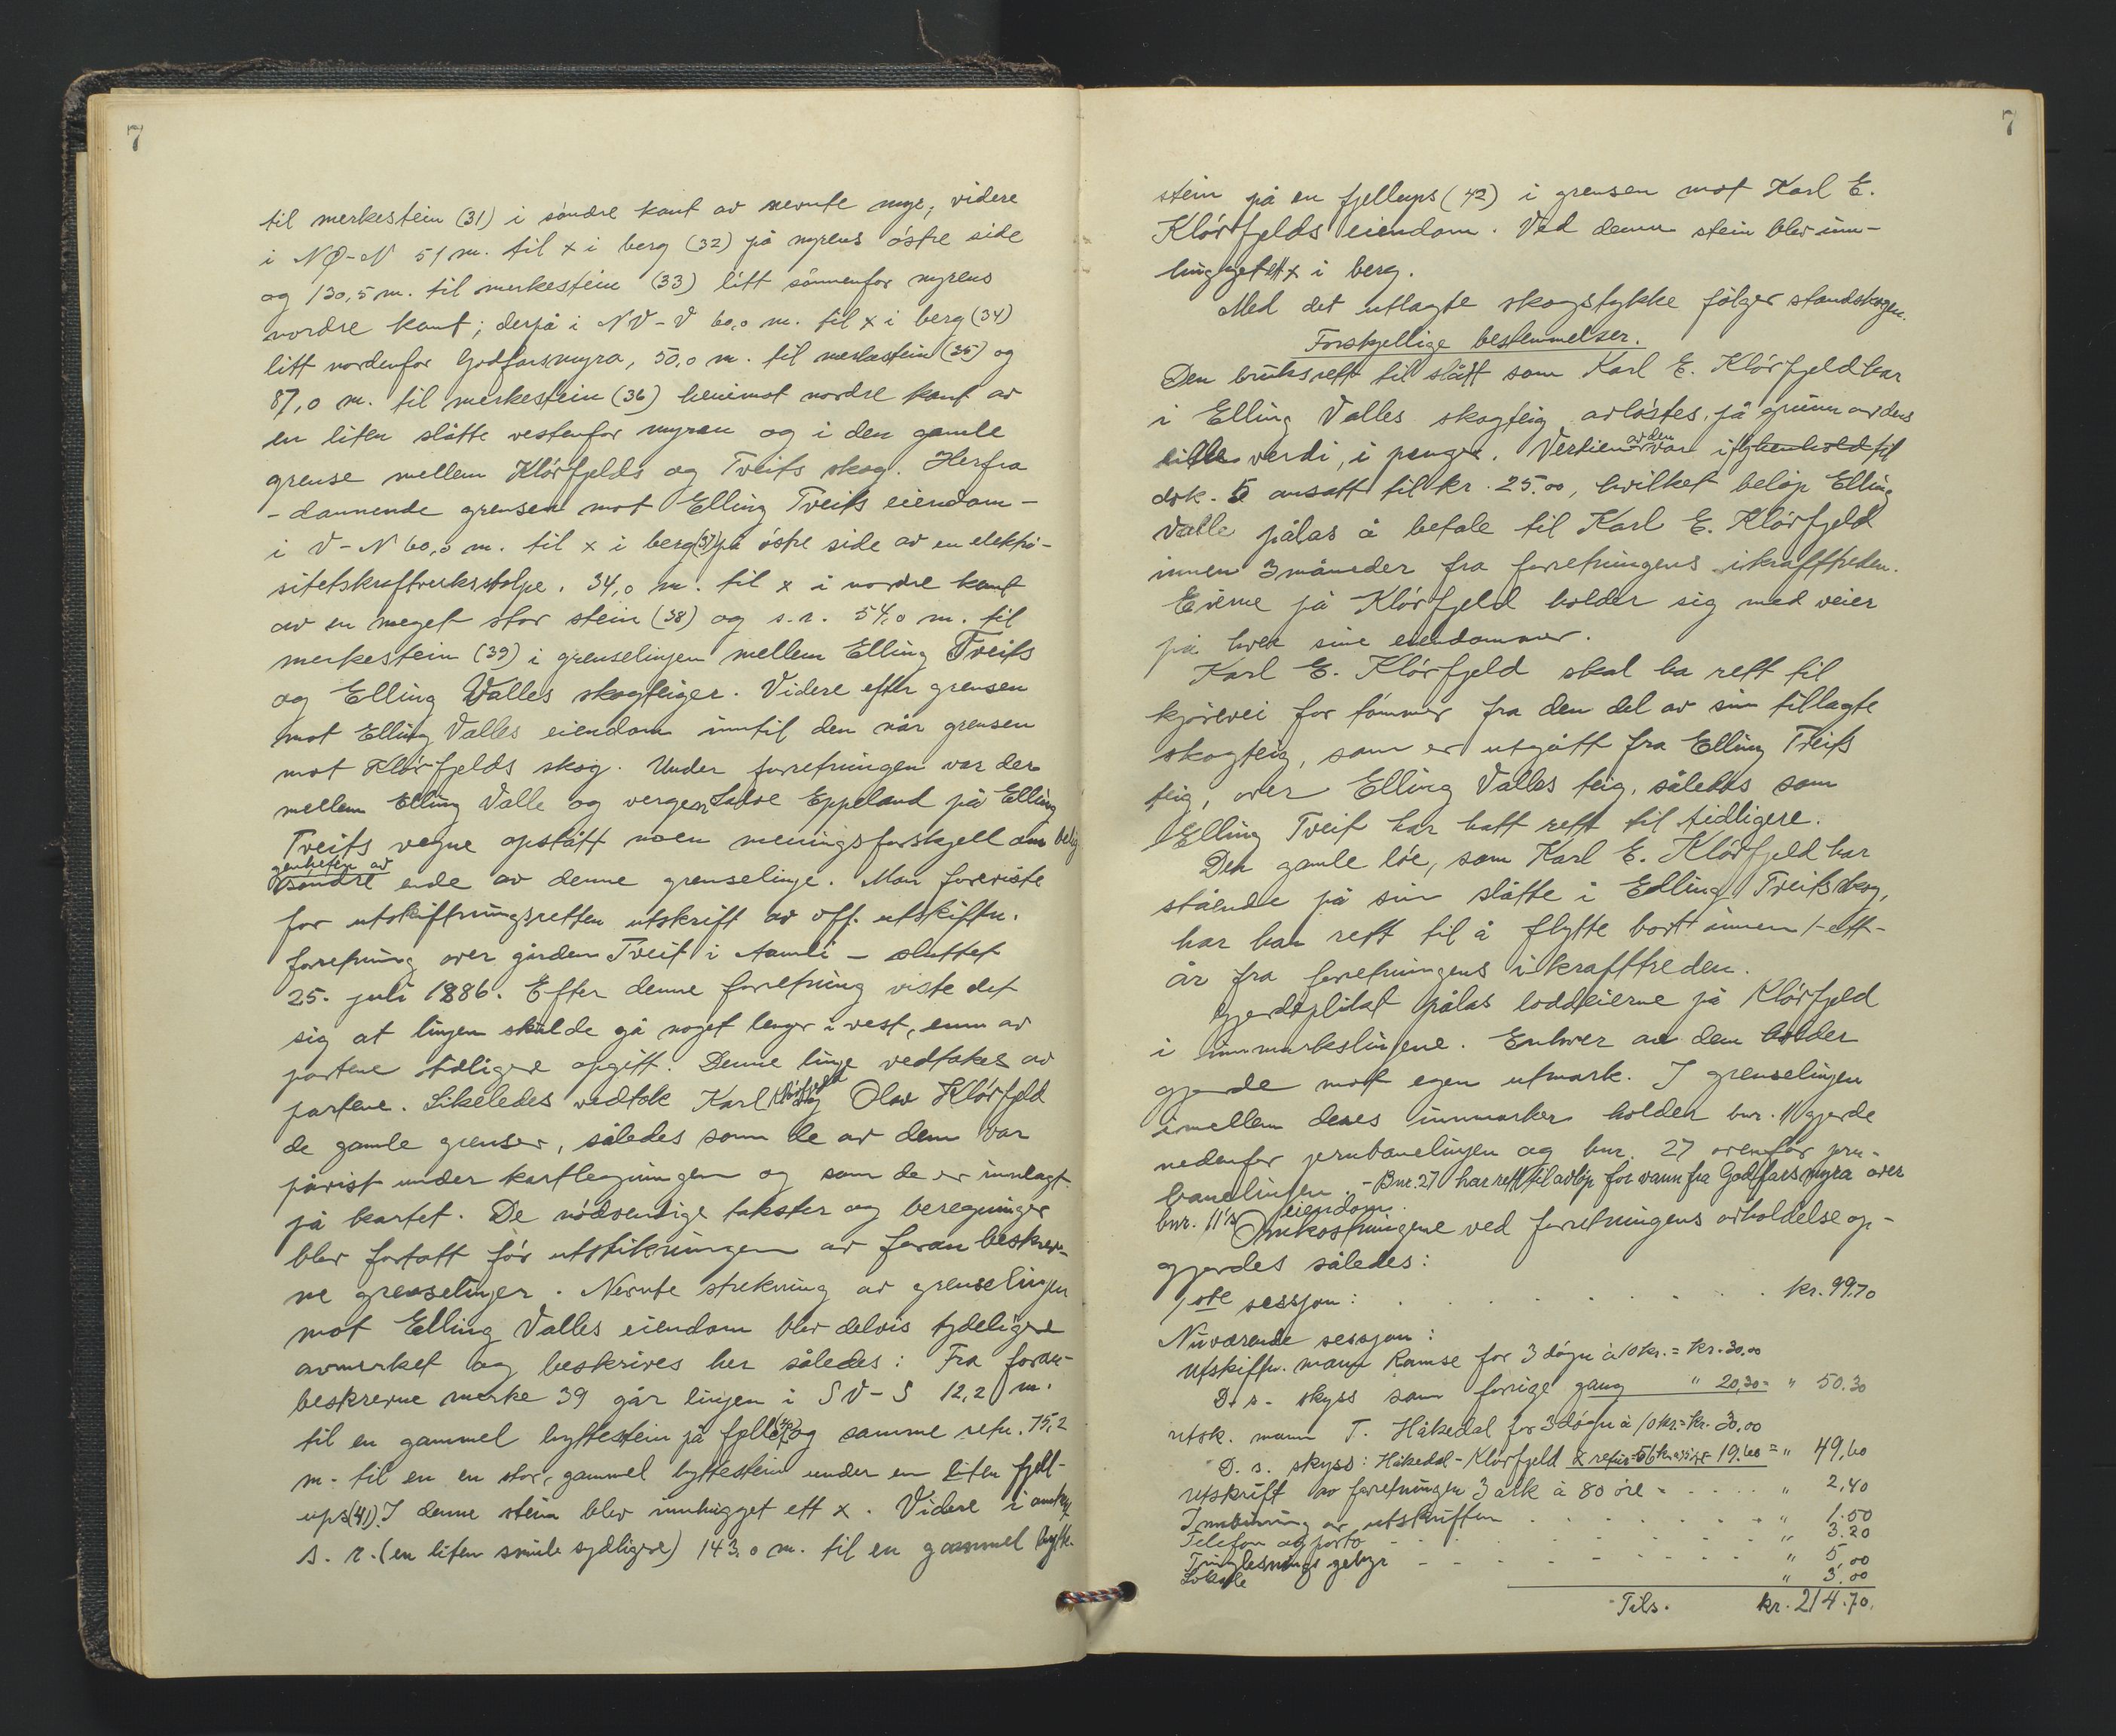 7
til merkestein (31) i søndre kant av nevnte myr; videre
i NØ-N 51 m. til x i berg (32) på myrens østre side
og 130,5 m. til merkestein (33) litt sønnenfor myrens
nordre kant; derpå i NV-V 60,0 m. til x i berg (34)
litt nordenfor Godfarsmyra, 50,0 m. til merkestein (35) og
87,0 m. til merkestein (36) henimot nordre kant av
en liten slåtte vestenfor myren og i den gamle
grense mellem Klörfjelds og Tveits skog. Herfra
- dannende grensen mot Elling Tveits eiendom -
i V-N 60,0 m. til x i berg (37) på østre side av en elektri-
sitetskraftverksstolpe, 34,0 m. til x i nordre kant
av en meget stor stein (38) og s.r. 54,0 m. til
merkestein (39) i grenselinjen mellem Elling Tveits
og Elling Valles skogteiger. Videre efter grensen
mot Elling Valles eiendom inntil den når grensen
mot Klörfjelds skog. Under forretningen var der
mellem Elling Valle og vergen Salve Eppeland på Elling
Tveits vegne opstått noen meningsforskjell om belig-
genheten av
søndre ende av denne grenselinje. Man foreviste
for utskiftningsretten utskrift av off. utskiftn.
forretning over gården Tveit i Aamli - sluttet
25. juli 1886. Efter denne forretning viste det
sig at linjen skulde gå noget lenger i vest, enn av
partene tidligere opgitt. Denne linje vedtakes av
partene. Likeledes vedtok Karl Klörfjeld og Olav Klörfjeld
de gamle grenser, således som de av dem var
påvist under kartlegningen og som de er innlagt
på kartet. De nödvendige takster og beregninger
blev fortatt för utstikningen av foran beskrev-
ne grenselinjer. Nevnte strekning av grenselinjen
mot Elling Valles eiendom blev delvis tydeligere
avmerket og beskrives her således: Fra foran-
beskrevne merke 39 går linjen i SV-S 12,2 m.
til en gammel byttestein på fjell (40) og samme retn. 75,2
m. til en en stor, gammel byttestein under en liten fjell-
ups (41). I denne stein blev innhugget ett x. Videre i omtr.
s. r. (en liten smule sydligere) 143,0 m. til en gammel bytte-
7
stein på en fjellups (42) i grensen mot Karl E.
Klörfjelds eiendom. Ved denne stein blev inn-
hugget ett x i berg.
Med det utlagte skogstykke følger standskogen.
Forskjellige bestemmelser.
Den bruksrett til slått som Karl E. Klörfjeld har
i Elling Valles skogteig avlöstes, på grunn av dens
lille verdi, i penger. Verdien av den var i henhold til
dok. 5 ansatt til kr. 25.00, hvilket belöp Elling
Valle pålas å betale til Karl E. Klörfjeld
innen 3 måneder fra forretningens ikrafttreden.
Eierne på Klörfjeld holder sig med veier
på hver sine eiendommer.
Karl E. Klörfjeld skal ha rett til
kjörevei for tömmer fra den del av sin tillagte
skogteig, som er utgått fra Elling Tveits
teig, over Elling Valles teig, således som
Elling Tveit har hatt rett til tidligere.
Den gamle löe, som Karl E. Klörfjeld har
stående på sin slåtte i Elling Tveits skog,
har han rett til å flytte bort innen 1-ett-
år fra forretningens ikrafttreden.
Gjerdeplikt pålas loddeierne på Klörfjeld
i innmarkslinjene. Enhver av dem holder
gjerde mot egen utmark. I grenselinjen
imellem deres innmarker holder bnr. 11 gjerde
nedenfor jernbanelinjen og bnr. 27 ovenfor jern-
banelinjen. - Bnr. 27 har rett til avlöp for vann fra Godfarsmyra over
bnr. 11's eiendom.
Omkostningene ved forretningens avholdelse op-
gjordes således:
1ste sesjon: . . . . . . . kr. 99.70
Nuværende sesjon:
Utskiftn. mann Ramse for 3 dögn à 10 kr. = kr. 30.00
D. s. skyss som forrige gang " 20,30 = " 50.30
utsk. mann T. Håkedal for 3 dögn à 10 kr. = kr. 30,00
D. s. skyss: Håkedal - Klörfjeld & retur = 56 km à 35 öre = 19.60 = " 49,60
Utskrift av forretningen 3 ark à 80 öre - . . . " 2,40
Innbinning av utskriften . . . . " 1.50
Telefon og porto - - - - " 3.20
Tinglesnings gebyr - - - - " 5,00
Lokale " 3.00
Tils. kr. 214.70.